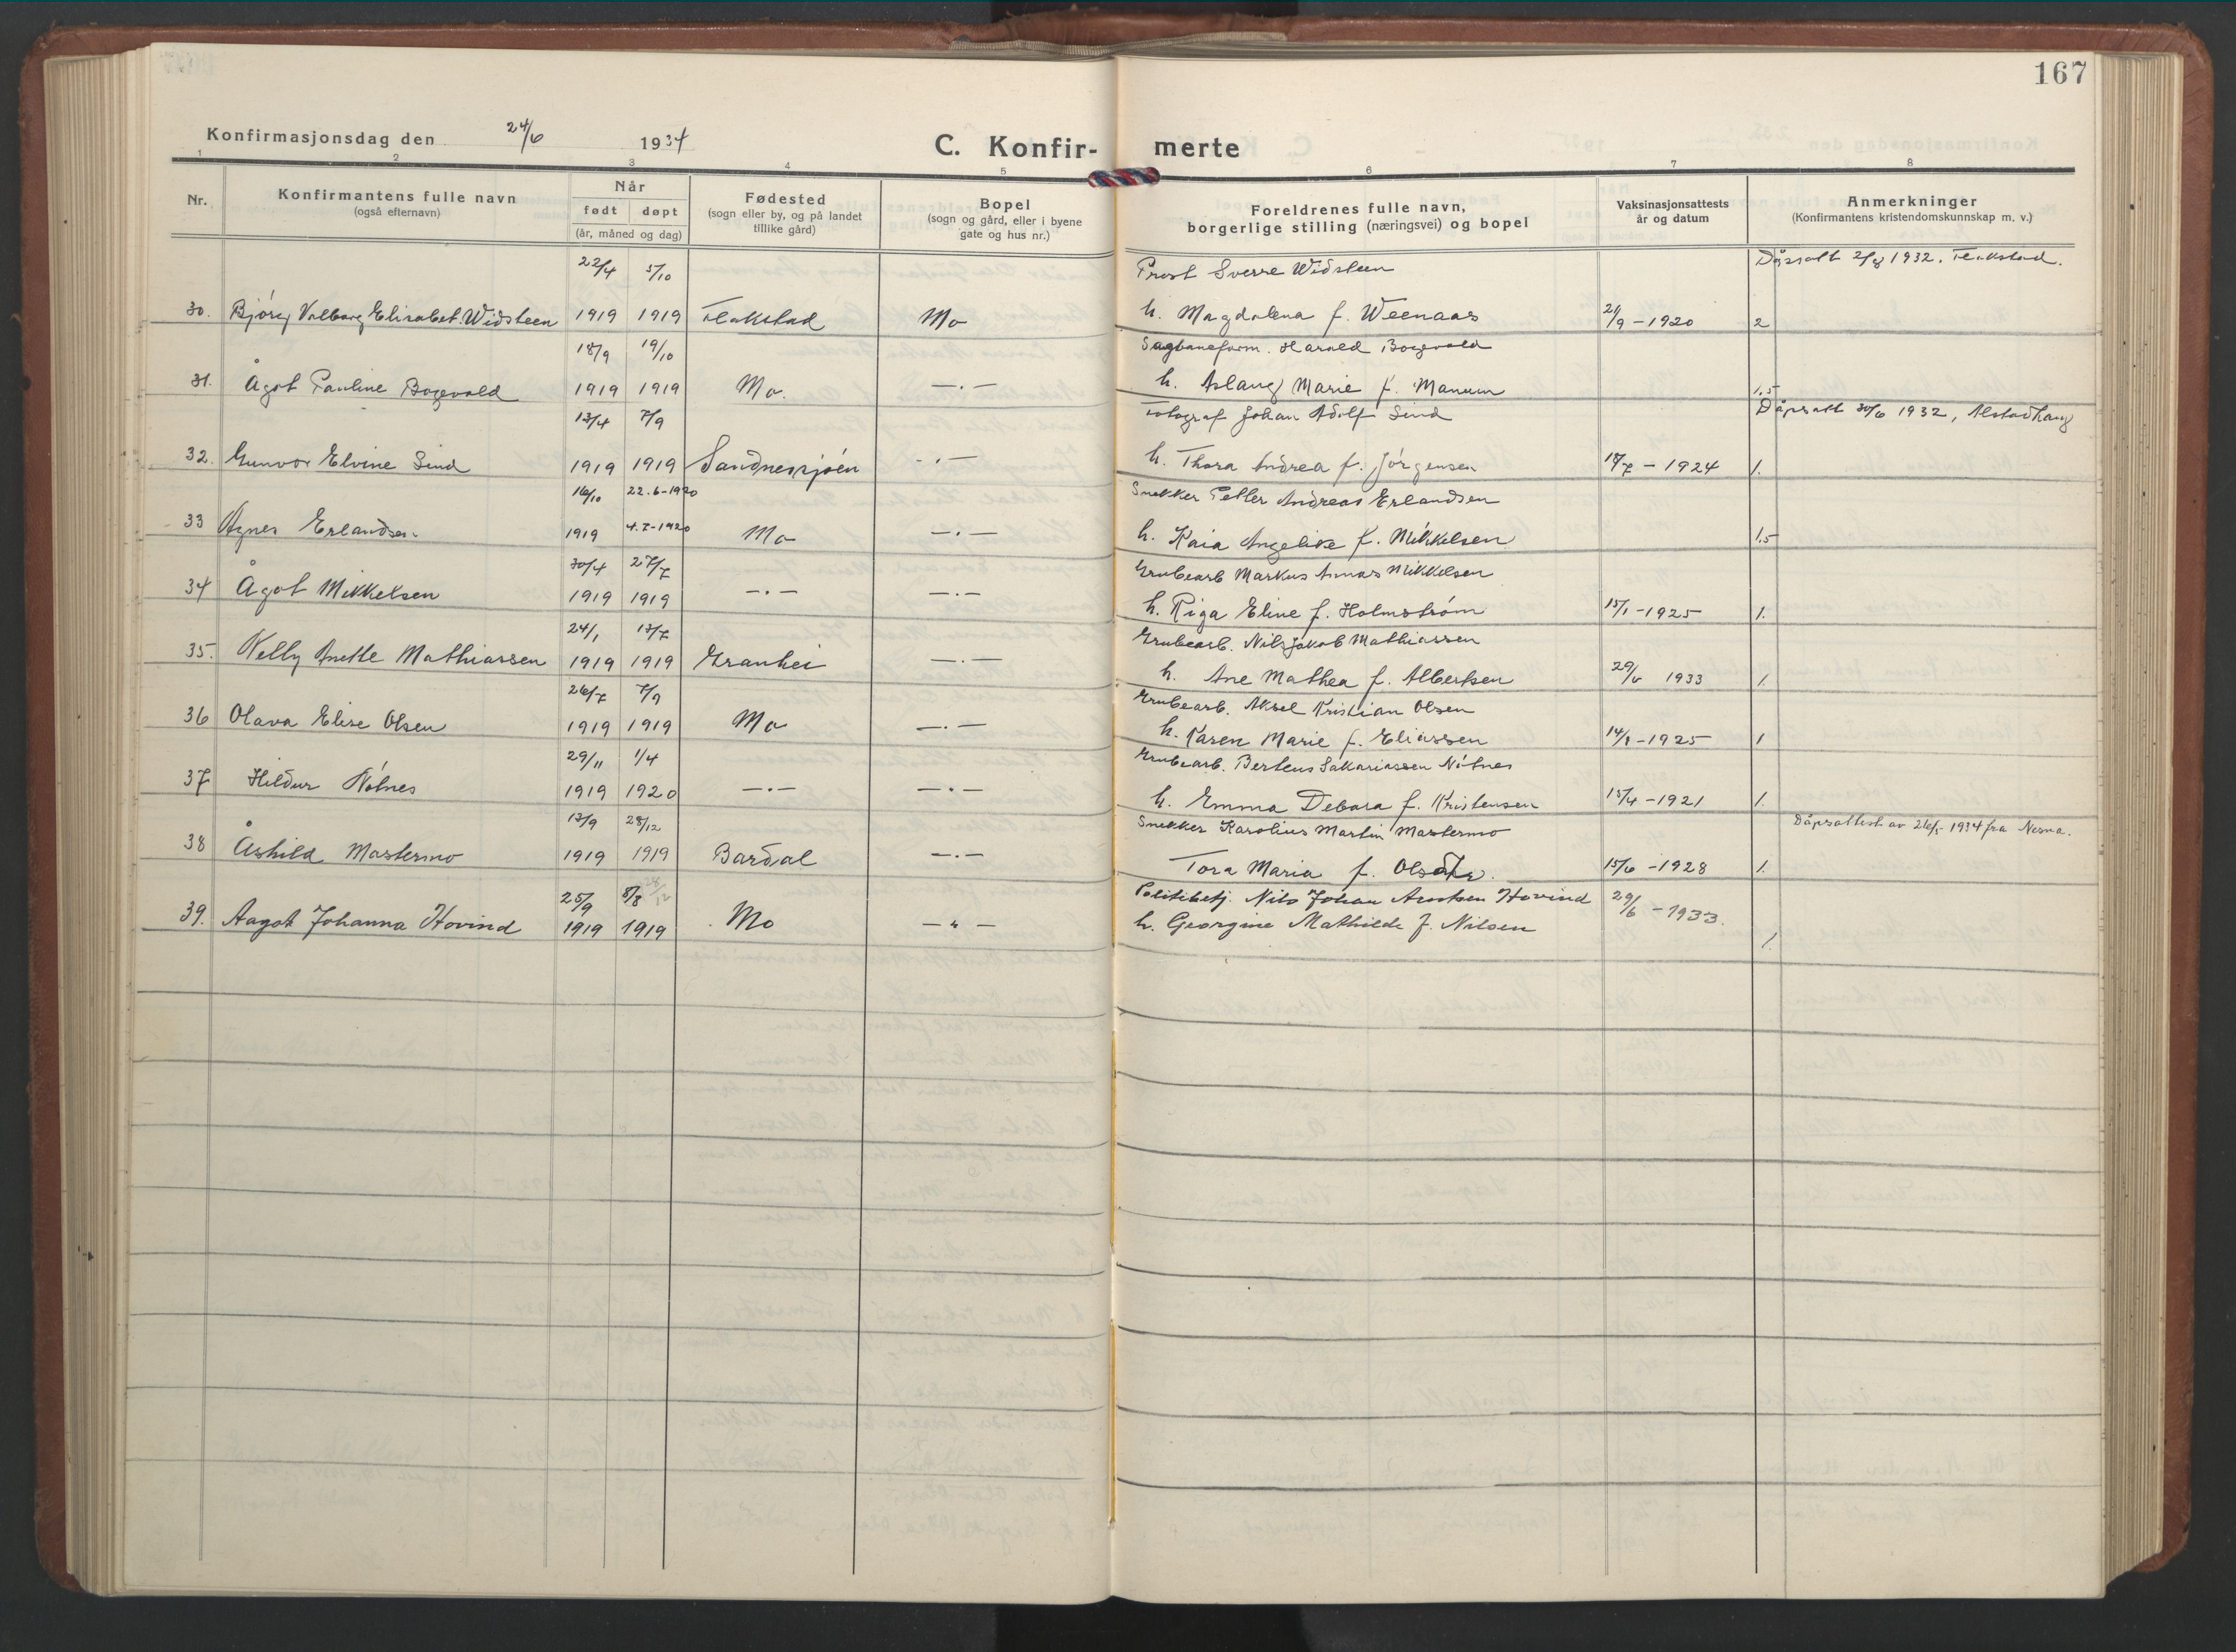 167
Konfirmasjonsdag den 24/6 1934
C. Konfir- merte
1 2 3 4 5 6 7 8
Nr.
Konfirmantens fulle navn
(også efternavn)
Når
født døpt
(år, måned og dag)
Fødested
(sogn eller by, og på landet
tillike gård)
Bopel
(sogn og gård, eller i byene
gate og hus nr.)
Foreldrenes fulle navn,
borgerlige stilling (næringsvei) og bopel
Vaksinasjonsattests
år og datum
Anmerkninger
(Konfirmantens kristendomskunnskap m. v.)
22/4 5/10 Prost Sverre Widsteen Dåpsatt 2/8 1932. Flakstad.
30. Bjórg Valborg Elisabet Widsteen 1919 1919 Flakstad Mo h. Magdalena f. Weenaas 21/9 - 1920 2
18/9 19/10 Sagbaneform. Harald Bogevold
31. Ågot Pauline Bogevold 1919 1919 Mo. —.— h. Aslaug Marie f. Manum 1,5
13/4 7/9 Fotograf Johan Adolf Sund Dåpsatt 30/6 1932, Alstadhaug
32. Gunvor Elvine Sund 1919 1919 Sandnessjøen -.— h. Thora Andrea f. Jórgensen 18/7 - 1924 1.
16/10 22.6-1920 Snekker Petter Andreas Erlandsen
33 Agnes Erlandsen 1919 4.7-1920 Mo —.— h. Kaia Angelise f. Mikkelsen 1.5
30/4 27/7 Grubearb Markus Mikkelsen
34 Ågot Mikkelsen 1919 1919 —.— —.— h. Riga Eline f. Holmstróm 15/1 - 1925 1.
24/1 13/7 Grubearb. Nils Jakob Mathiassen
35. Nelly Anette Mathiassen 1919 1919 Granhei —.— h. Ane Mathea f. Albertsen 29/6 1933 1.
26/7 7/9 Grubearb. Aksel Kristian Olsen
36 Olava Elise Olsen 1919 1919 Mo —.— h. Karen Marie f. Eliassen 14/1 - 1925 1
29/11 1/4 Grubearb. Berteus Sakariassen Nótnes
37 Hildur Nótnes 1919 1920 —.— —.— h. Emma Debora f. Kristensen 15/4 - 1921 1.
13/9 28/12 Snekker Karolius Martin Mastermo Dåpsattest av 26/5 - 1934 fra Nesna.
38 Åshild Mastermo 1919 1919 Bardal —.— Tora Maria f. 15/6 - 1928 1.
25/9 8/8 28/12 Politibetj. Nils Johan Arntsen Hovind 29/6 - 1933.
39. Aagot Johanna Hovind 1919 1919 Mo — " — h. Georgine Mathilde f. Nilsen 1.